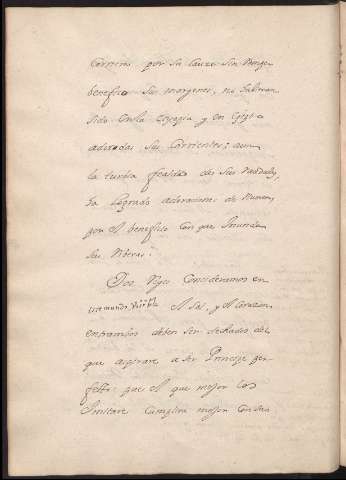 Corriera por su cauze sin venze
beneficio sus margenes, no hubieran
sido en la Etyopia y en Egipto
adoradas sus Corrientes; aun
la turbia fealdad des sus raudales,
ha logrado adoraciones de Numen,
por el beneficio con que Inunda
sus Riberas.
Dos Reyes Consideramos en
este mundo Visible el Sol, y el Corazon,
entrambos deben ser dechados del
que aspirare a ser Principe per-
fecto: que el que mejor los
Imitare Cumplira mejor con su